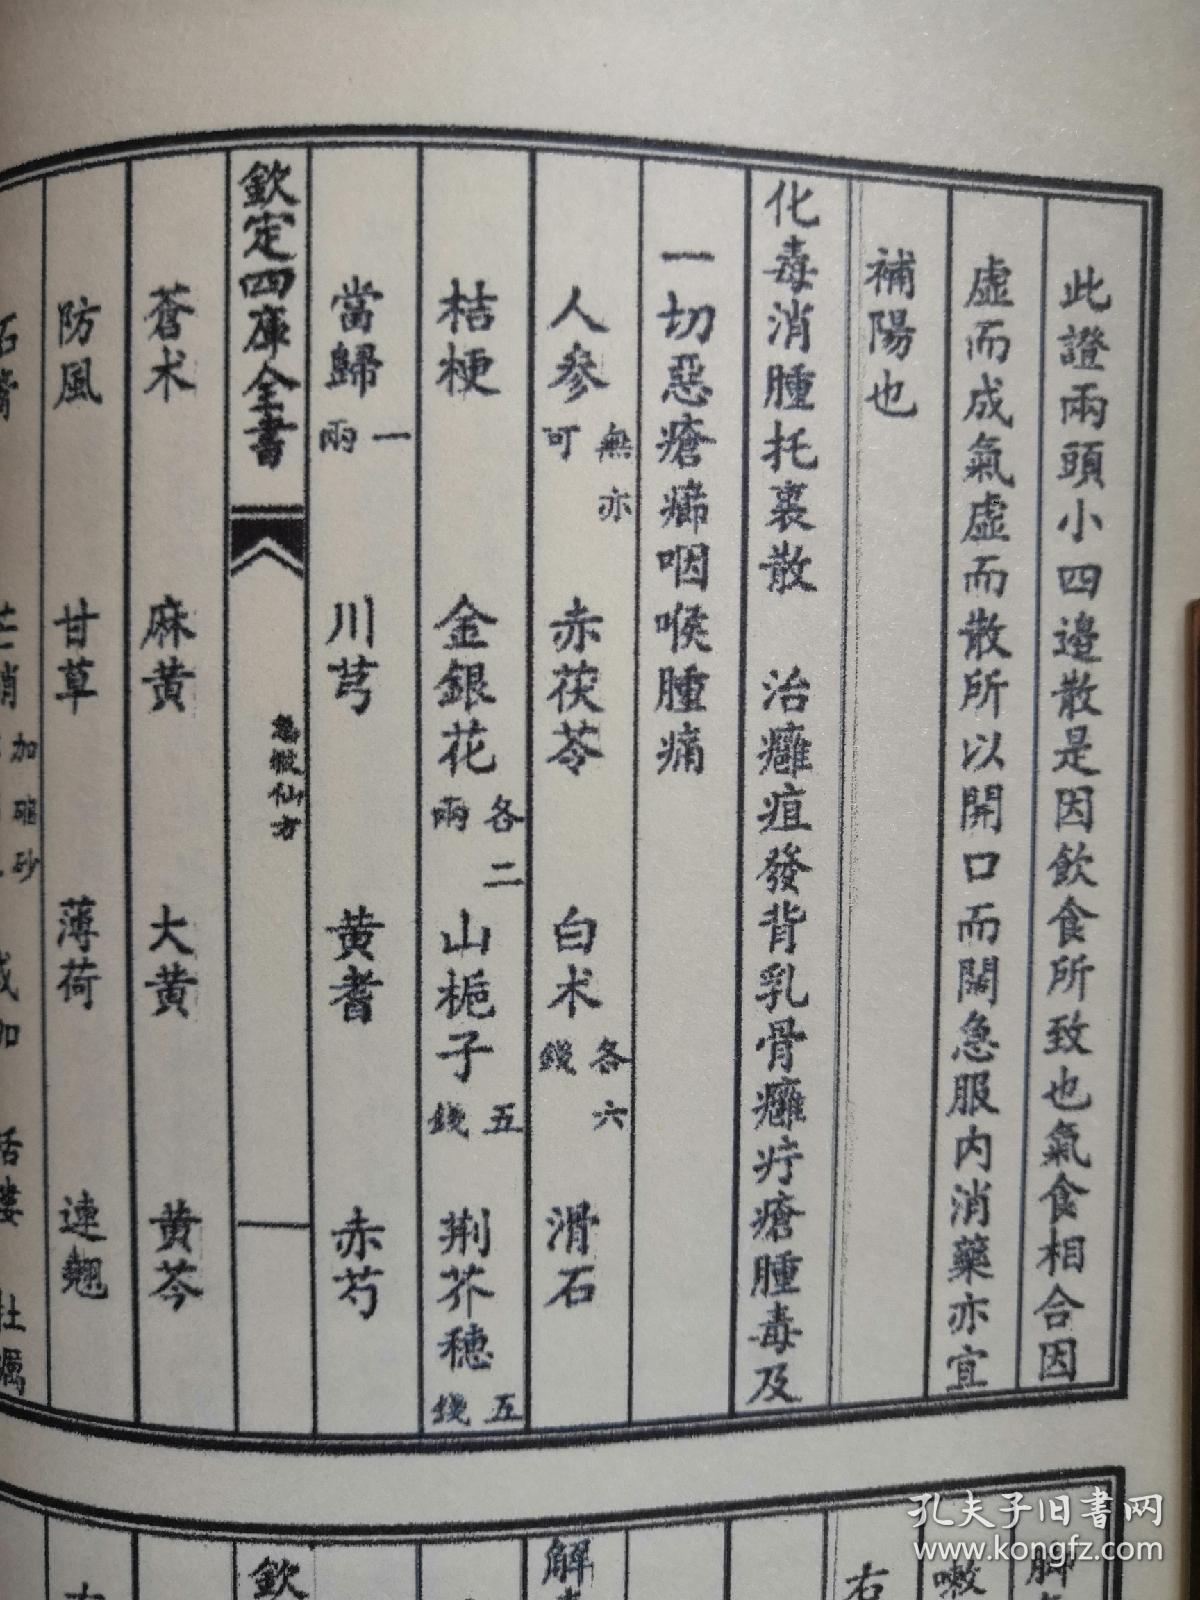 此證兩頭小四邊散是因飲食所致也氣食相合因
虛而成氣虛而散所以開口而闊急服内消藥亦宜
補陽也
化毒消腫托裏散 治癰疽發背乳骨癰疔瘡腫毒及
一切惡瘡癤咽喉腫痛
人參無亦可 赤茯苓 白术各六錢 滑石
桔梗 金銀花各二兩 山梔子五錢 荆芥穗五錢
當歸一兩 川芎 黄耆 赤芍
欽定四庫全書 急救仙方 一
蒼术 麻黄 大黄 黄芩
防風 甘草 薄荷 連翹
石膏 芒硝 加硇砂 或加 括蔞 牡蠣
脚
嗽
右
解毒
欽
孔夫子旧书网
www.kongfz.com